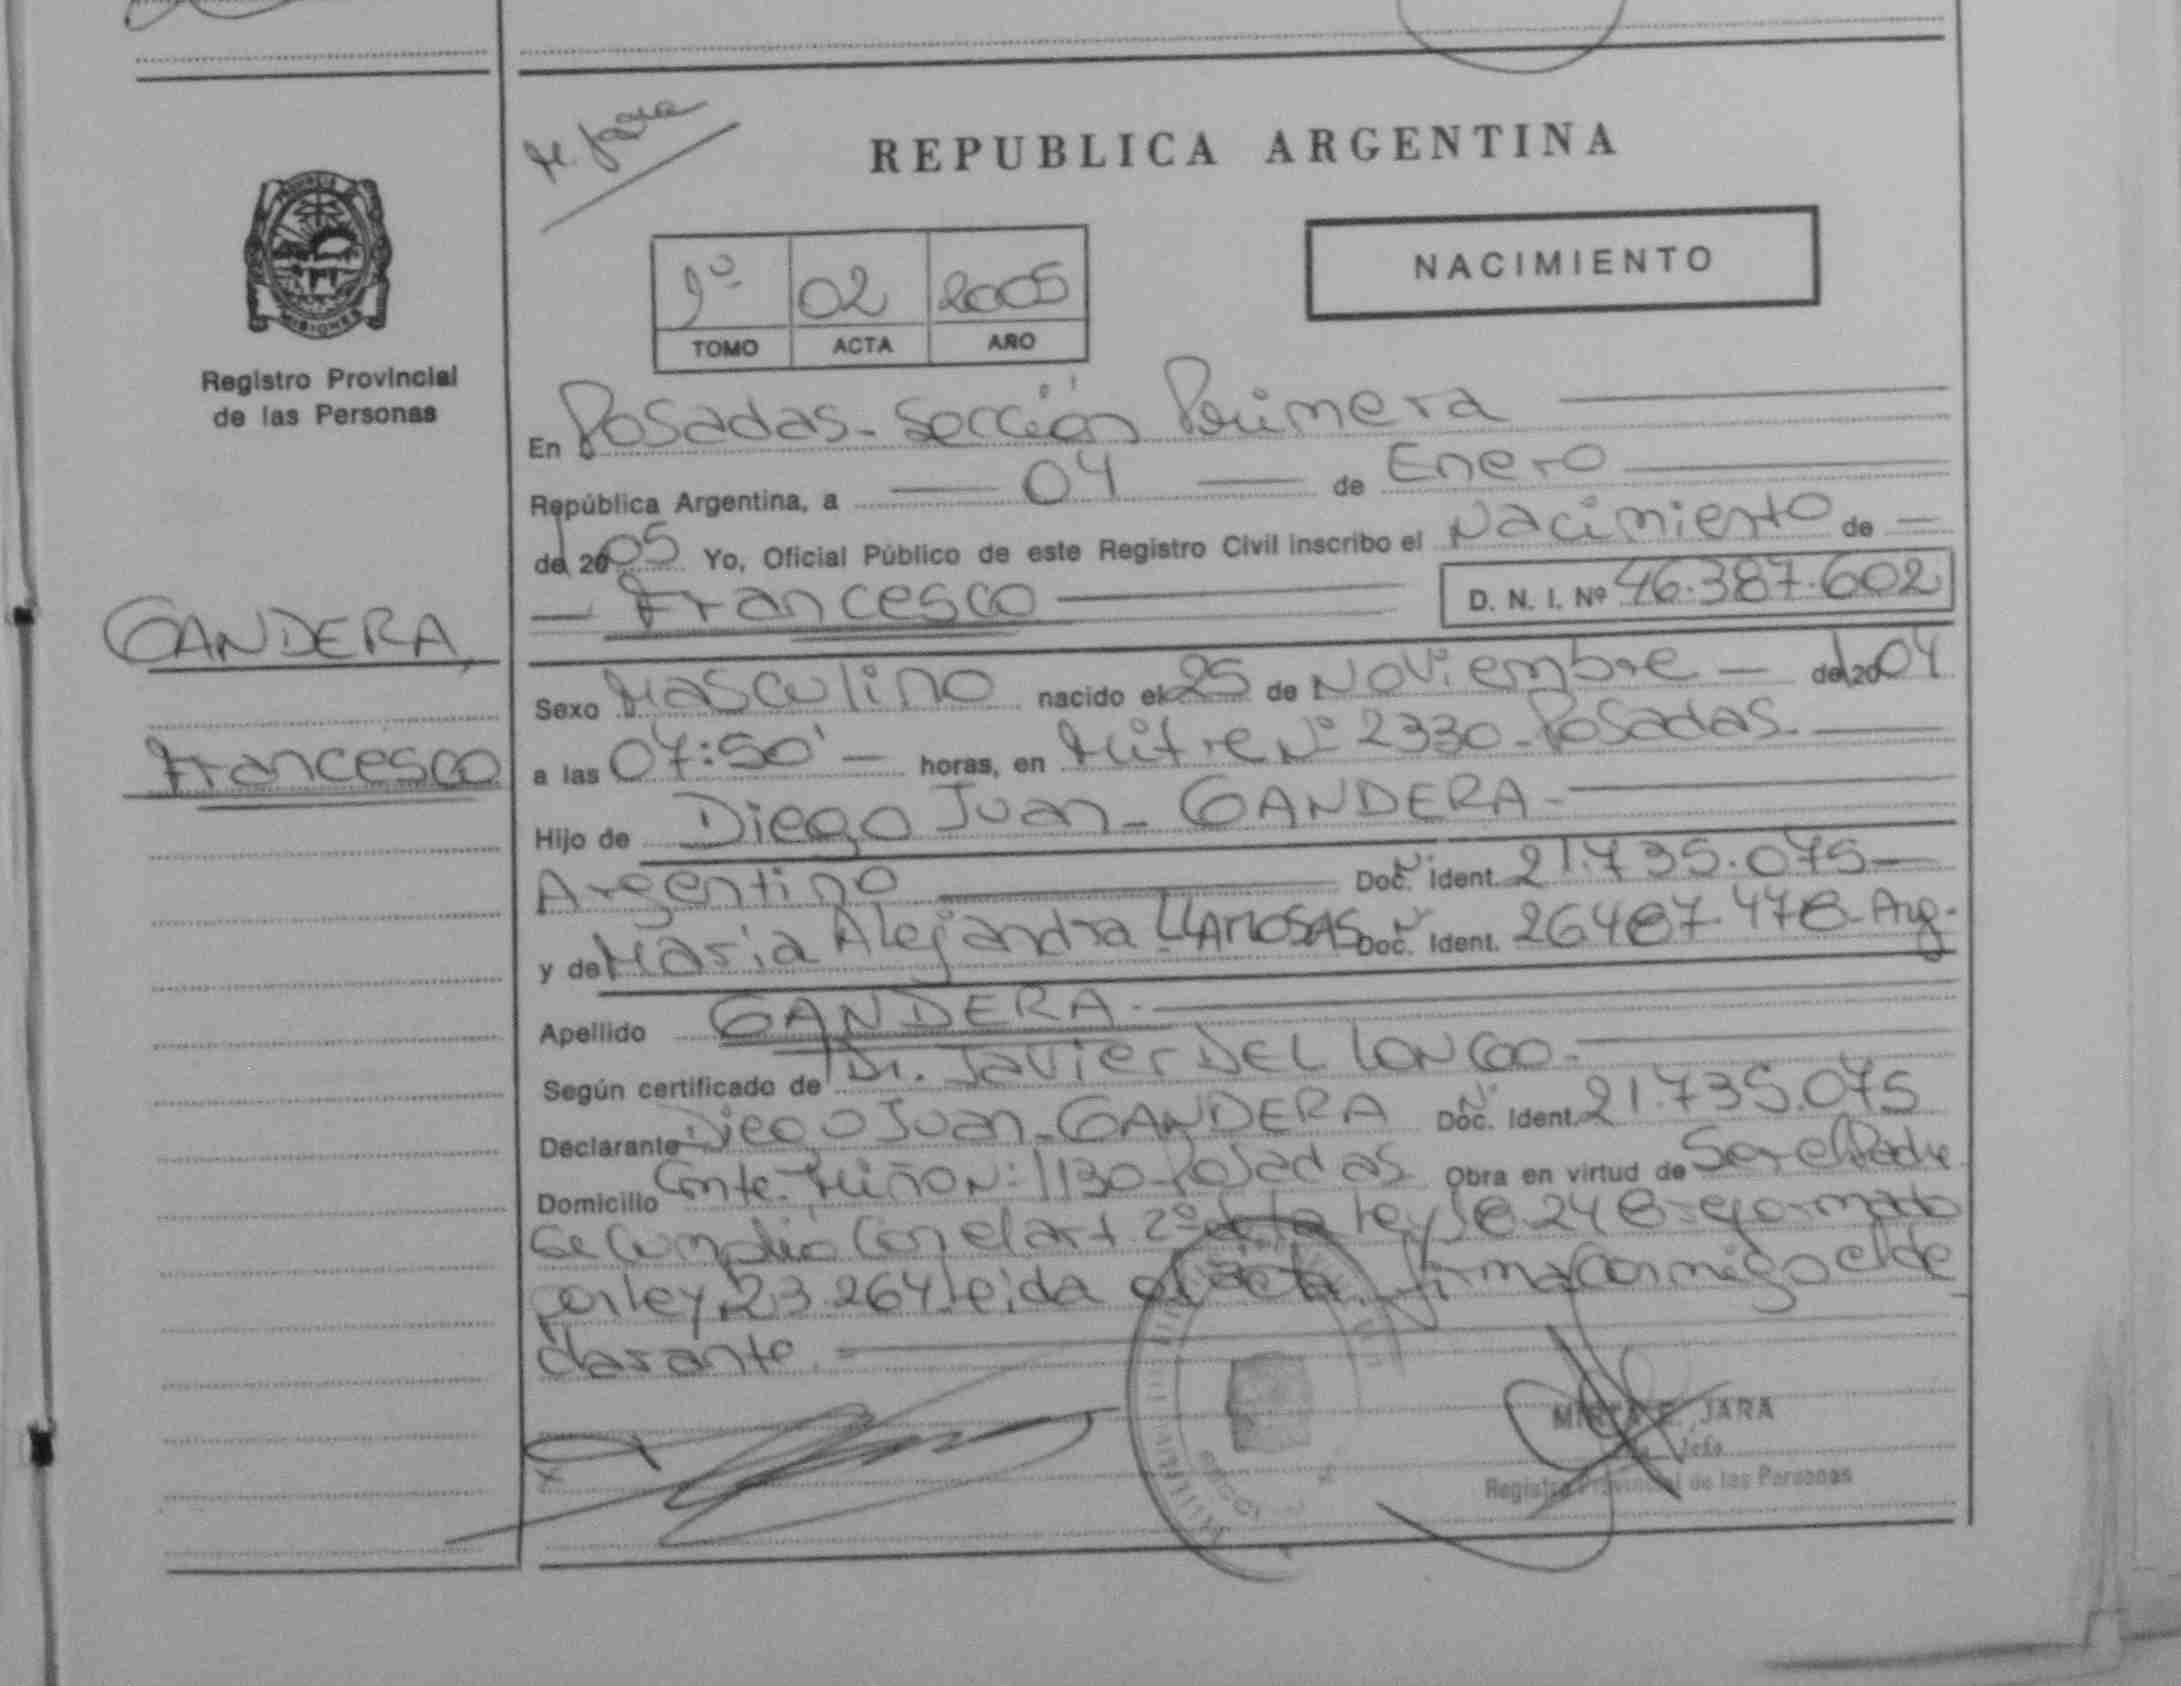 H. Jara
REPUBLICA ARGENTINA
NACIMIENTO
1º 02 2005
TOMO ACTA AÑO
PROVINCIA DE
MISIONES
Registro Provincial
de las Personas
En Posadas - Sección Primera
República Argentina, a 04 de Enero
del 2005 Yo, Oficial Público de este Registro Civil inscribo el Nacimiento de
Francesco D. N. I. Nº 46.387.602
GANDERA,
Francesco
Sexo Masculino nacido el 25 de Noviembre del 2004
a las 07:50' horas, en Mitre Nº 2330 - Posadas.
Hijo de Diego Juan - GANDERA -
Argentino Doc. Nº Ident. 21.735.075
y de Maria Alejandra LLAMOSAS Doc. Nº Ident. 26487.478 - Arg.
Apellido GANDERA.
Según certificado de Dr. Javier DEL LONGO.
Declarante Diego Juan - GANDERA Doc. Nº Ident. 21.735.075
Domicilio Cnte. Miño Nº 1130 - Posadas Obra en virtud de Ser el Padre
Se Cumplió Con el art 2º de la ley 18.248
por ley 23.264 leida el acta, firma Conmigo el de
clarante.
MIRTA E. JARA
Jefa
Registro Provincial de las Personas